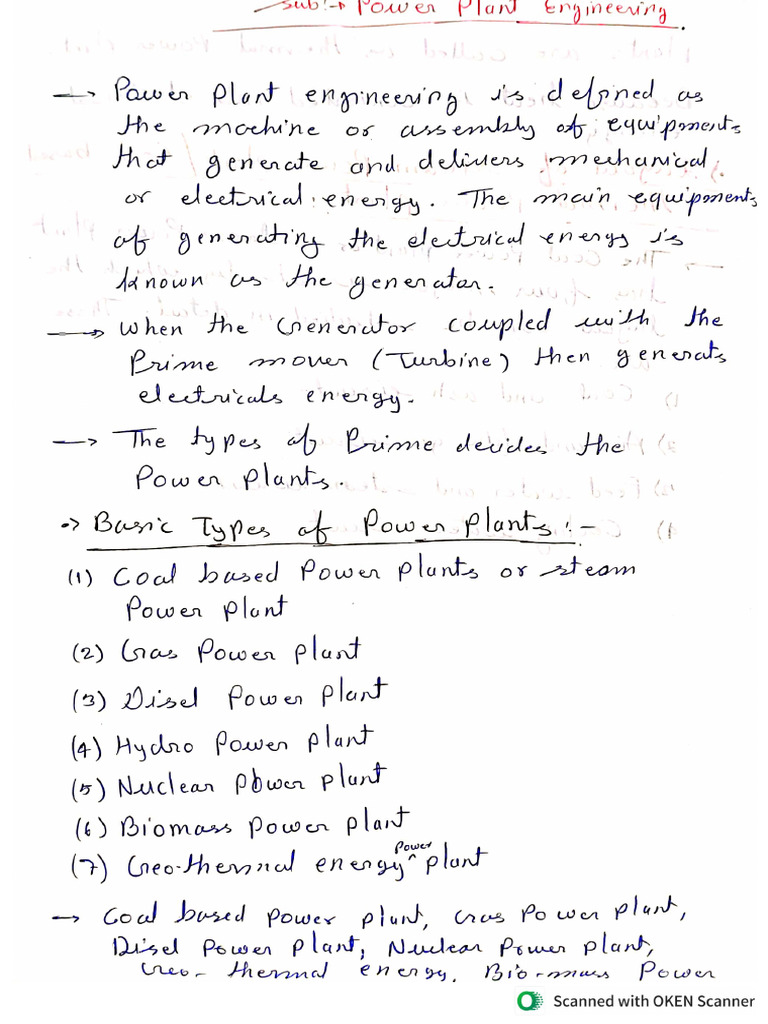 Sub:→ Power Plant Engineering
→ Power Plant engineering is defined as
the machine or assembly of equipments
that generate and delivers mechanical
or electrical energy. The main equipments
of generating the electrical energy is
known as the generator.
→ When the Generator coupled with the
Prime mover (Turbine) then generats
electricals energy.
→ The types of Prime decides the
Power Plants.
→ Basic Types of Power Plants :-
(1) Coal based Power plants or steam
Power plant
(2) Gas Power plant
(3) Disel Power Plant
(4) Hydro Power plant
(5) Nuclear Power plant
(6) Biomass power plant
(7) Geo-thermal energy ^Power plant
→ Coal based power plant, Gas Power plant,
Disel Power Plant, Nuclear Power plant,
Geo-thermal energy, Bio-mass Power
Scanned with OKEN Scanner